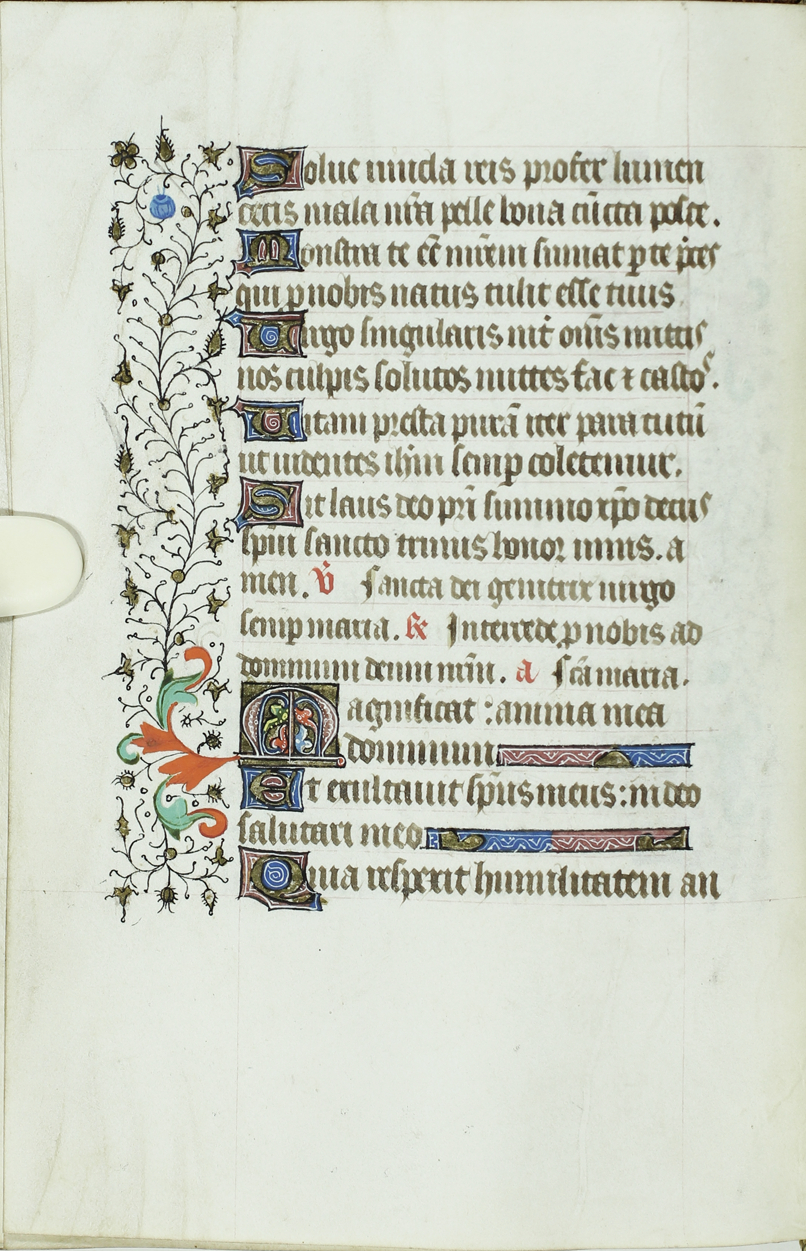 Solue uincla reis profer lumen
cecis mala nr̃a pelle bona cũcta posce.
Monstra te eẽ matrẽm sumat p te p̃ces
qui p nobis natus tulit esse tuus
Uirgo singularis int̃ om̃s mitis
nos culpis solutos mittes fac ⁊ castos.
Uitam presta purã iter para tutũ
ut uidentes ihm̃ semp colletemur.
Sit laus deo pr̃i summo xp̃o decus
spũi sancto trinus honor unus. a
men. ℣ Sancta dei genitrix uirgo
semp maria. ℟ Intercede p nobis ad
dominum deum nr̃m. a Sc̃a maria.
Magnificat : anima mea
dominum
Et exultauit sp̃us meus : in deo
salutari meo
Quia respexit humilitatem an